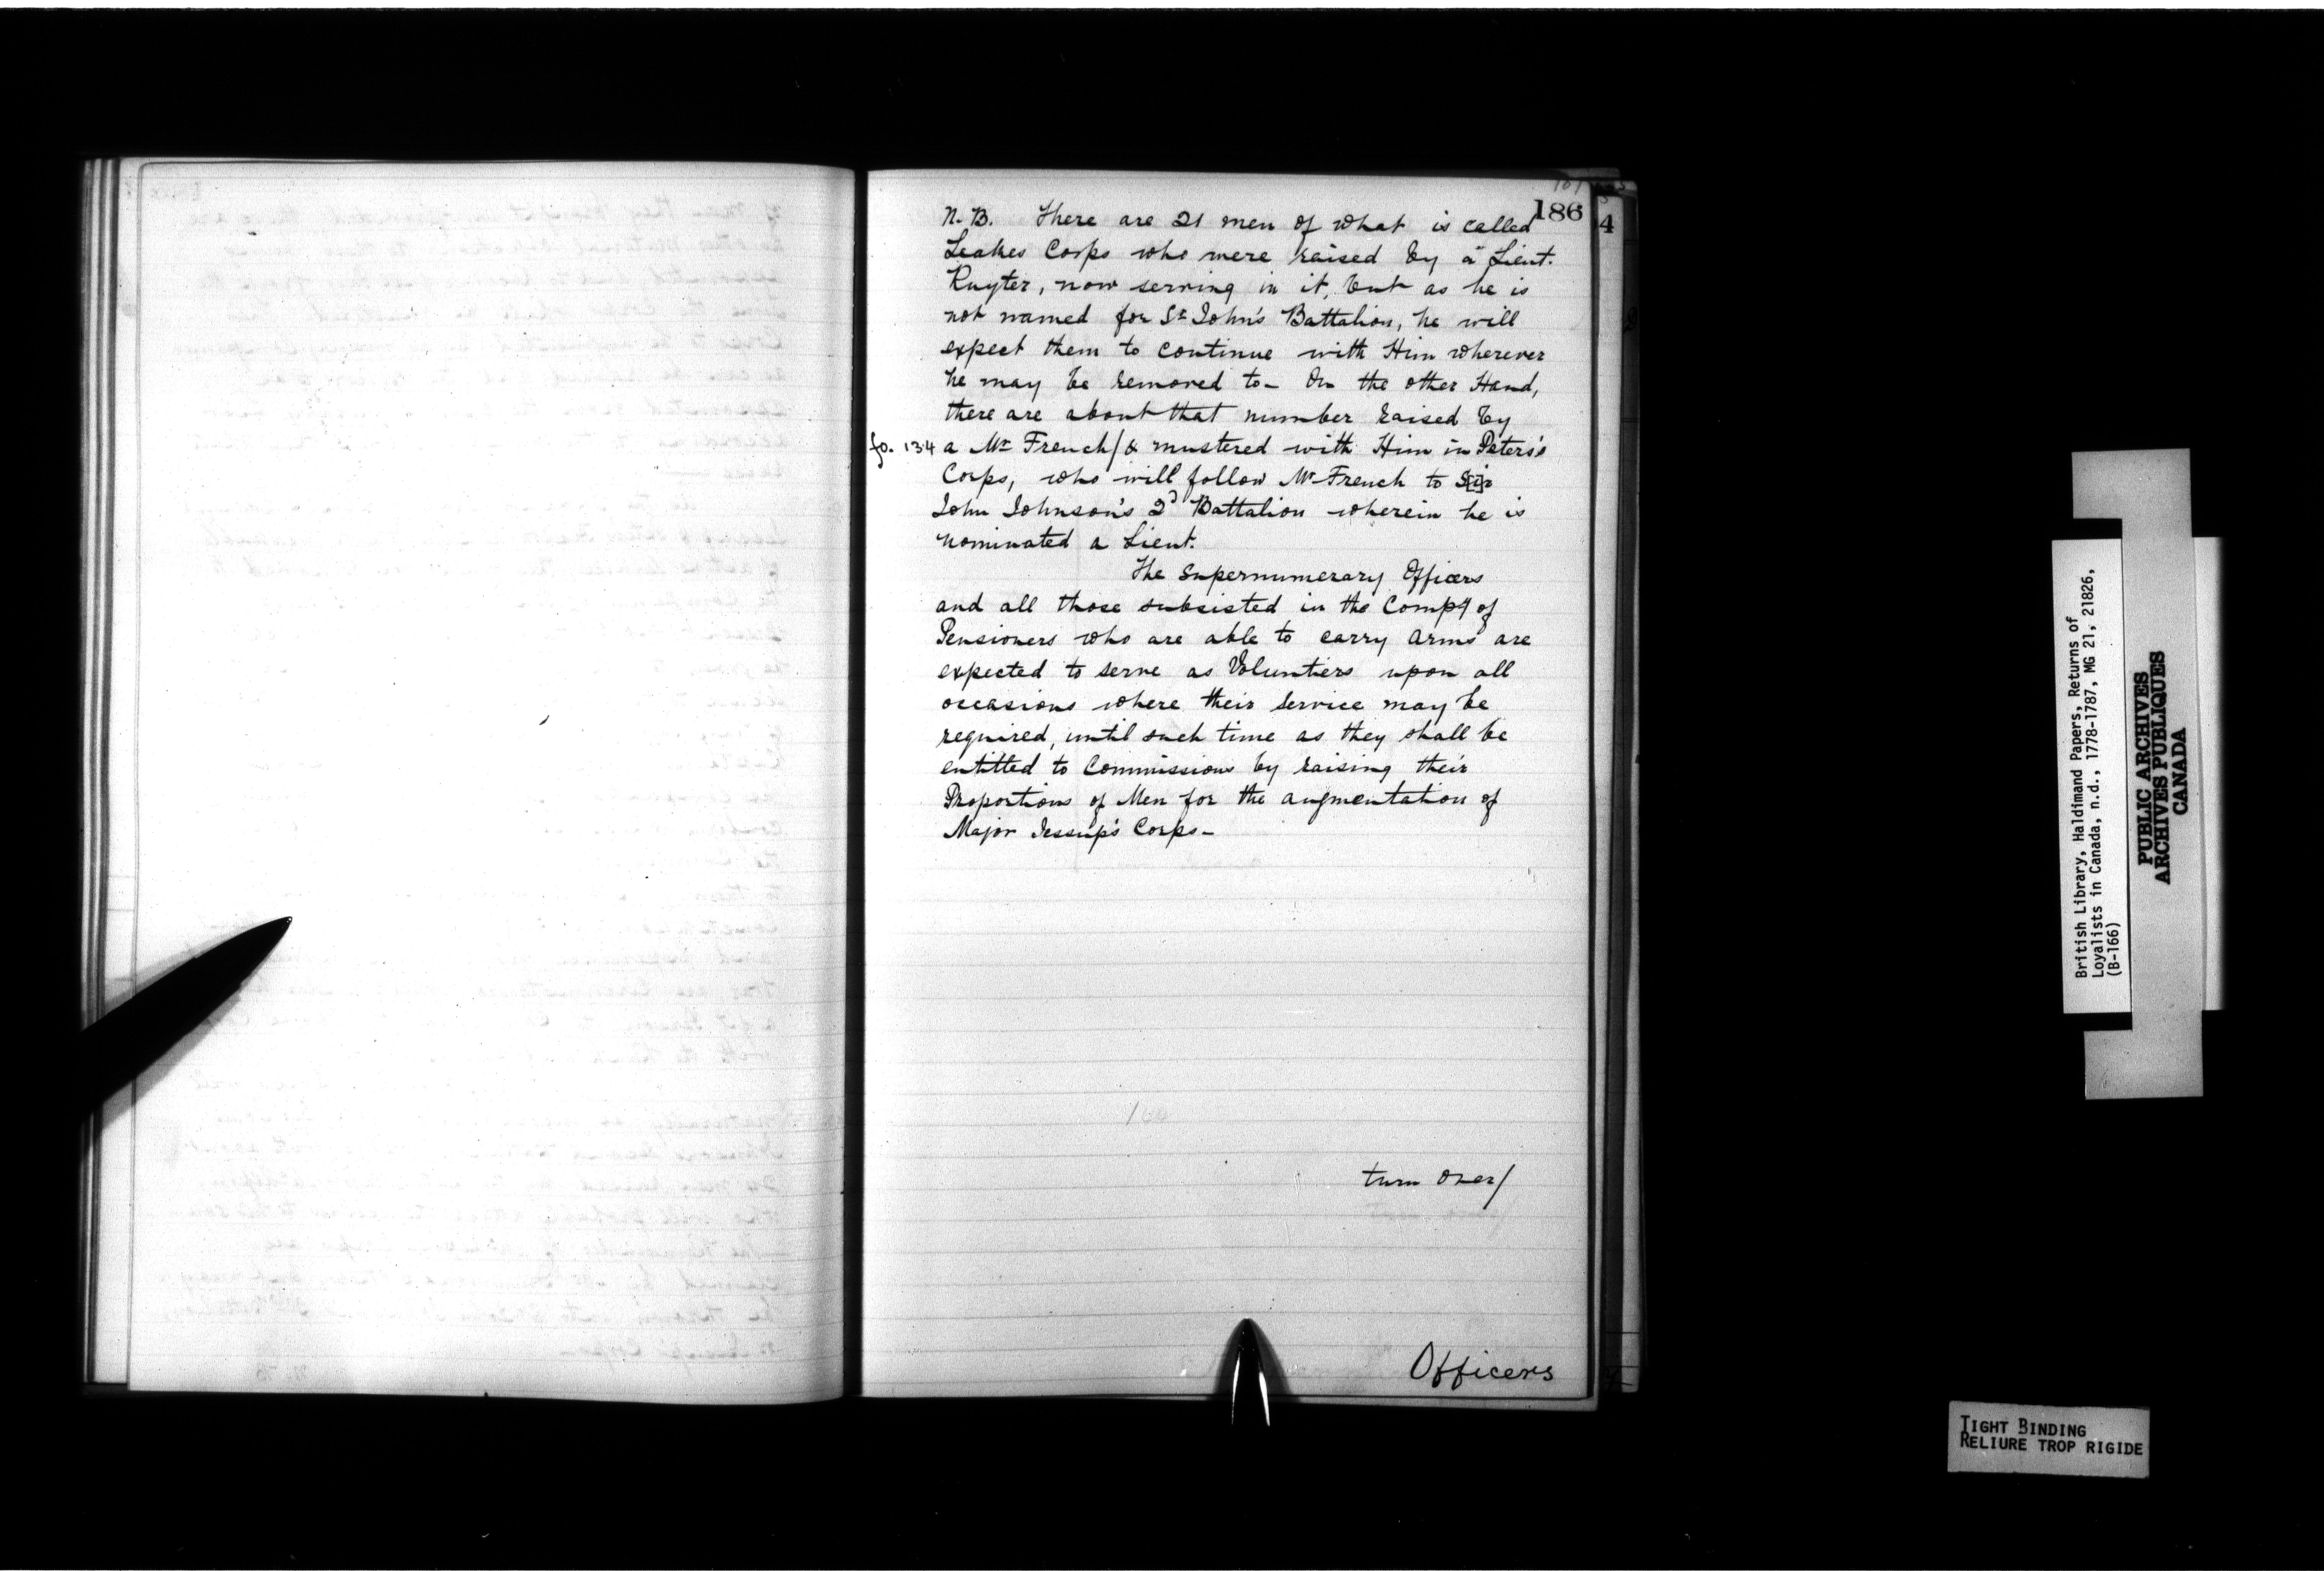 186
4
N.B. There are 21 men of what is called
Leakes Corps who were raised by a Lieut.
Ruyter, now serving in it, but as he is
not named for Sr John's Battalion, he will
expect them to continue with Him wherever
he may be removed to - On the other Hand,
there are about that number raised by
fo. 134 a Mr French/& mustered with Him in Peters's
Corps, who will follow Mr French to Sir
John Johnson's 2d Battalion wherein he is
nominated a Lieut.
The Supernumerary Officers
and all those subsisted in the Compy of
Pensioners who are able to carry arms are
expected to serve as Voluntiers upon all
occasions where their service may be
required, until such time as they shall be
entitled to Commissions by raising their
Proportions of Men for the augmentation of
Major Jessup's Corps -
turn over/
Officers
British Library, Haldimand Papers, Returns of
Loyalists in Canada, n.d., 1778-1787, MG 21, 21826,
(B-166)
PUBLIC ARCHIVES
ARCHIVES PUBLIQUES
CANADA
TIGHT BINDING
RELIURE TROP RIGIDE